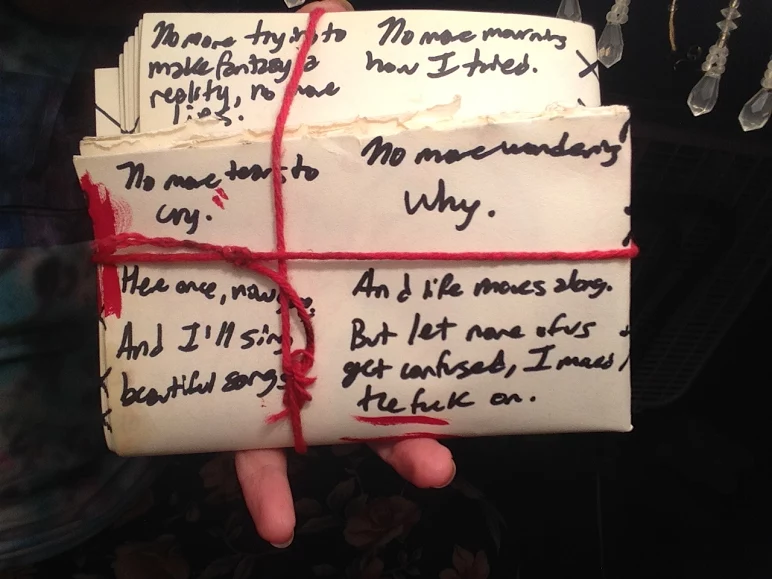 No more trying to
make fantasy a
reality, no more
lies.
No more mourning
how I tried.
No more tears to
cry.
No more wondering
Why.
Here once, now gone,
And I'll sing
beautiful songs
And life moves along.
But let none of us
get confused, I moved
the fuck on.